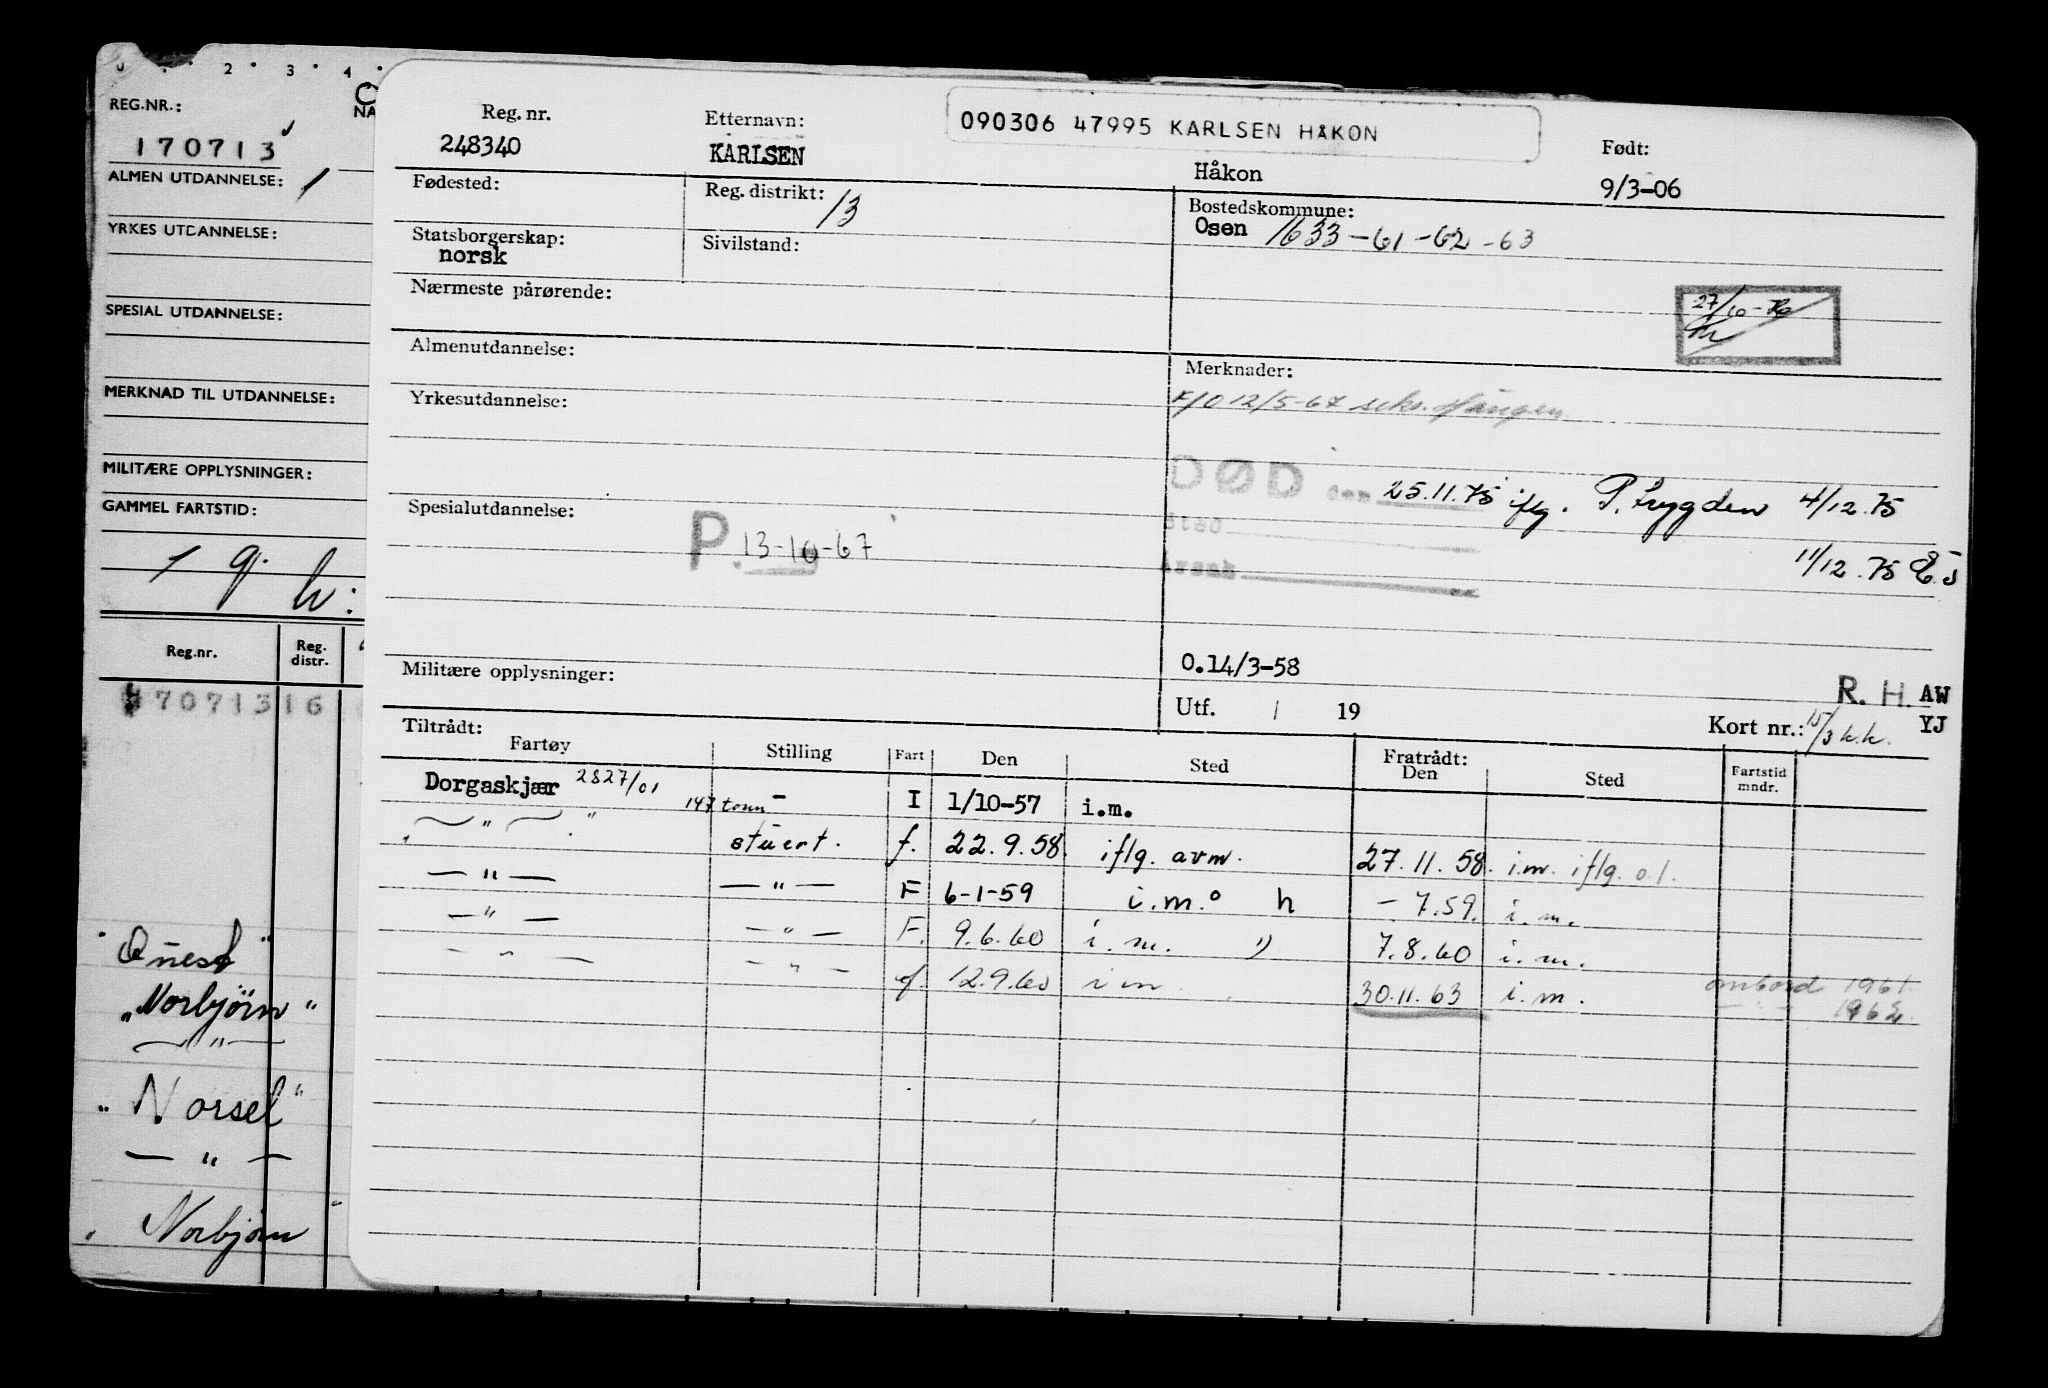 2 3 4
REG.NR.:
NA
170713
ALMEN UTDANNELSE: 1
YRKES UTDANNELSE:
SPESIAL UTDANNELSE:
MERKNAD TIL UTDANNELSE:
MILITÆRE OPPLYSNINGER:
GAMMEL FARTSTID:
Reg.nr. Reg. distr.
7071316
"Quest"
"Norbjörn"
— " —
"Norsel"
— " —
"Norbjörn"
090306 47995 KARLSEN HÅKON
Reg. nr. Etternavn: Født:
248340 KARLSEN Håkon 9/3-06
Fødested: Reg. distrikt: 13 Bostedskommune:
Osen 1633-61-62-63
Statsborgerskap: Sivilstand:
norsk
Nærmeste pårørende:
27/10-
Almenutdannelse: Merknader:
Yrkesutdannelse: F/O 12/5-67
DØD den 25.11.75 iflg. P.trygden 4/12.75
Sted
Spesialutdannelse: P. 13-10-67
Årsak
11/12.75 E.J
Militære opplysninger: O.14/3-58
R. H. AW
Utf. / 19 Kort nr.: 15/3 k.k. YJ
Tiltrådt: Fratrådt:
Fartøy Stilling Fart Den Sted Den Sted Fartstid mndr.
Dorgaskjær 2827/01 147 tonn - I 1/10-57 i.m.
— " — stuert. f. 22.9.58. iflg. avm. 27.11.58. i.m. iflg. o.l.
— " — — " — F 6-1-59 i.m. h - 7.59. i.m.
— " — — " — F. 9.6.60 i.m. " 7.8.60 i.m.
— " — — " — f. 12.9.60 i m 30.11.63 i.m. ombord 1961.
— " — 1962